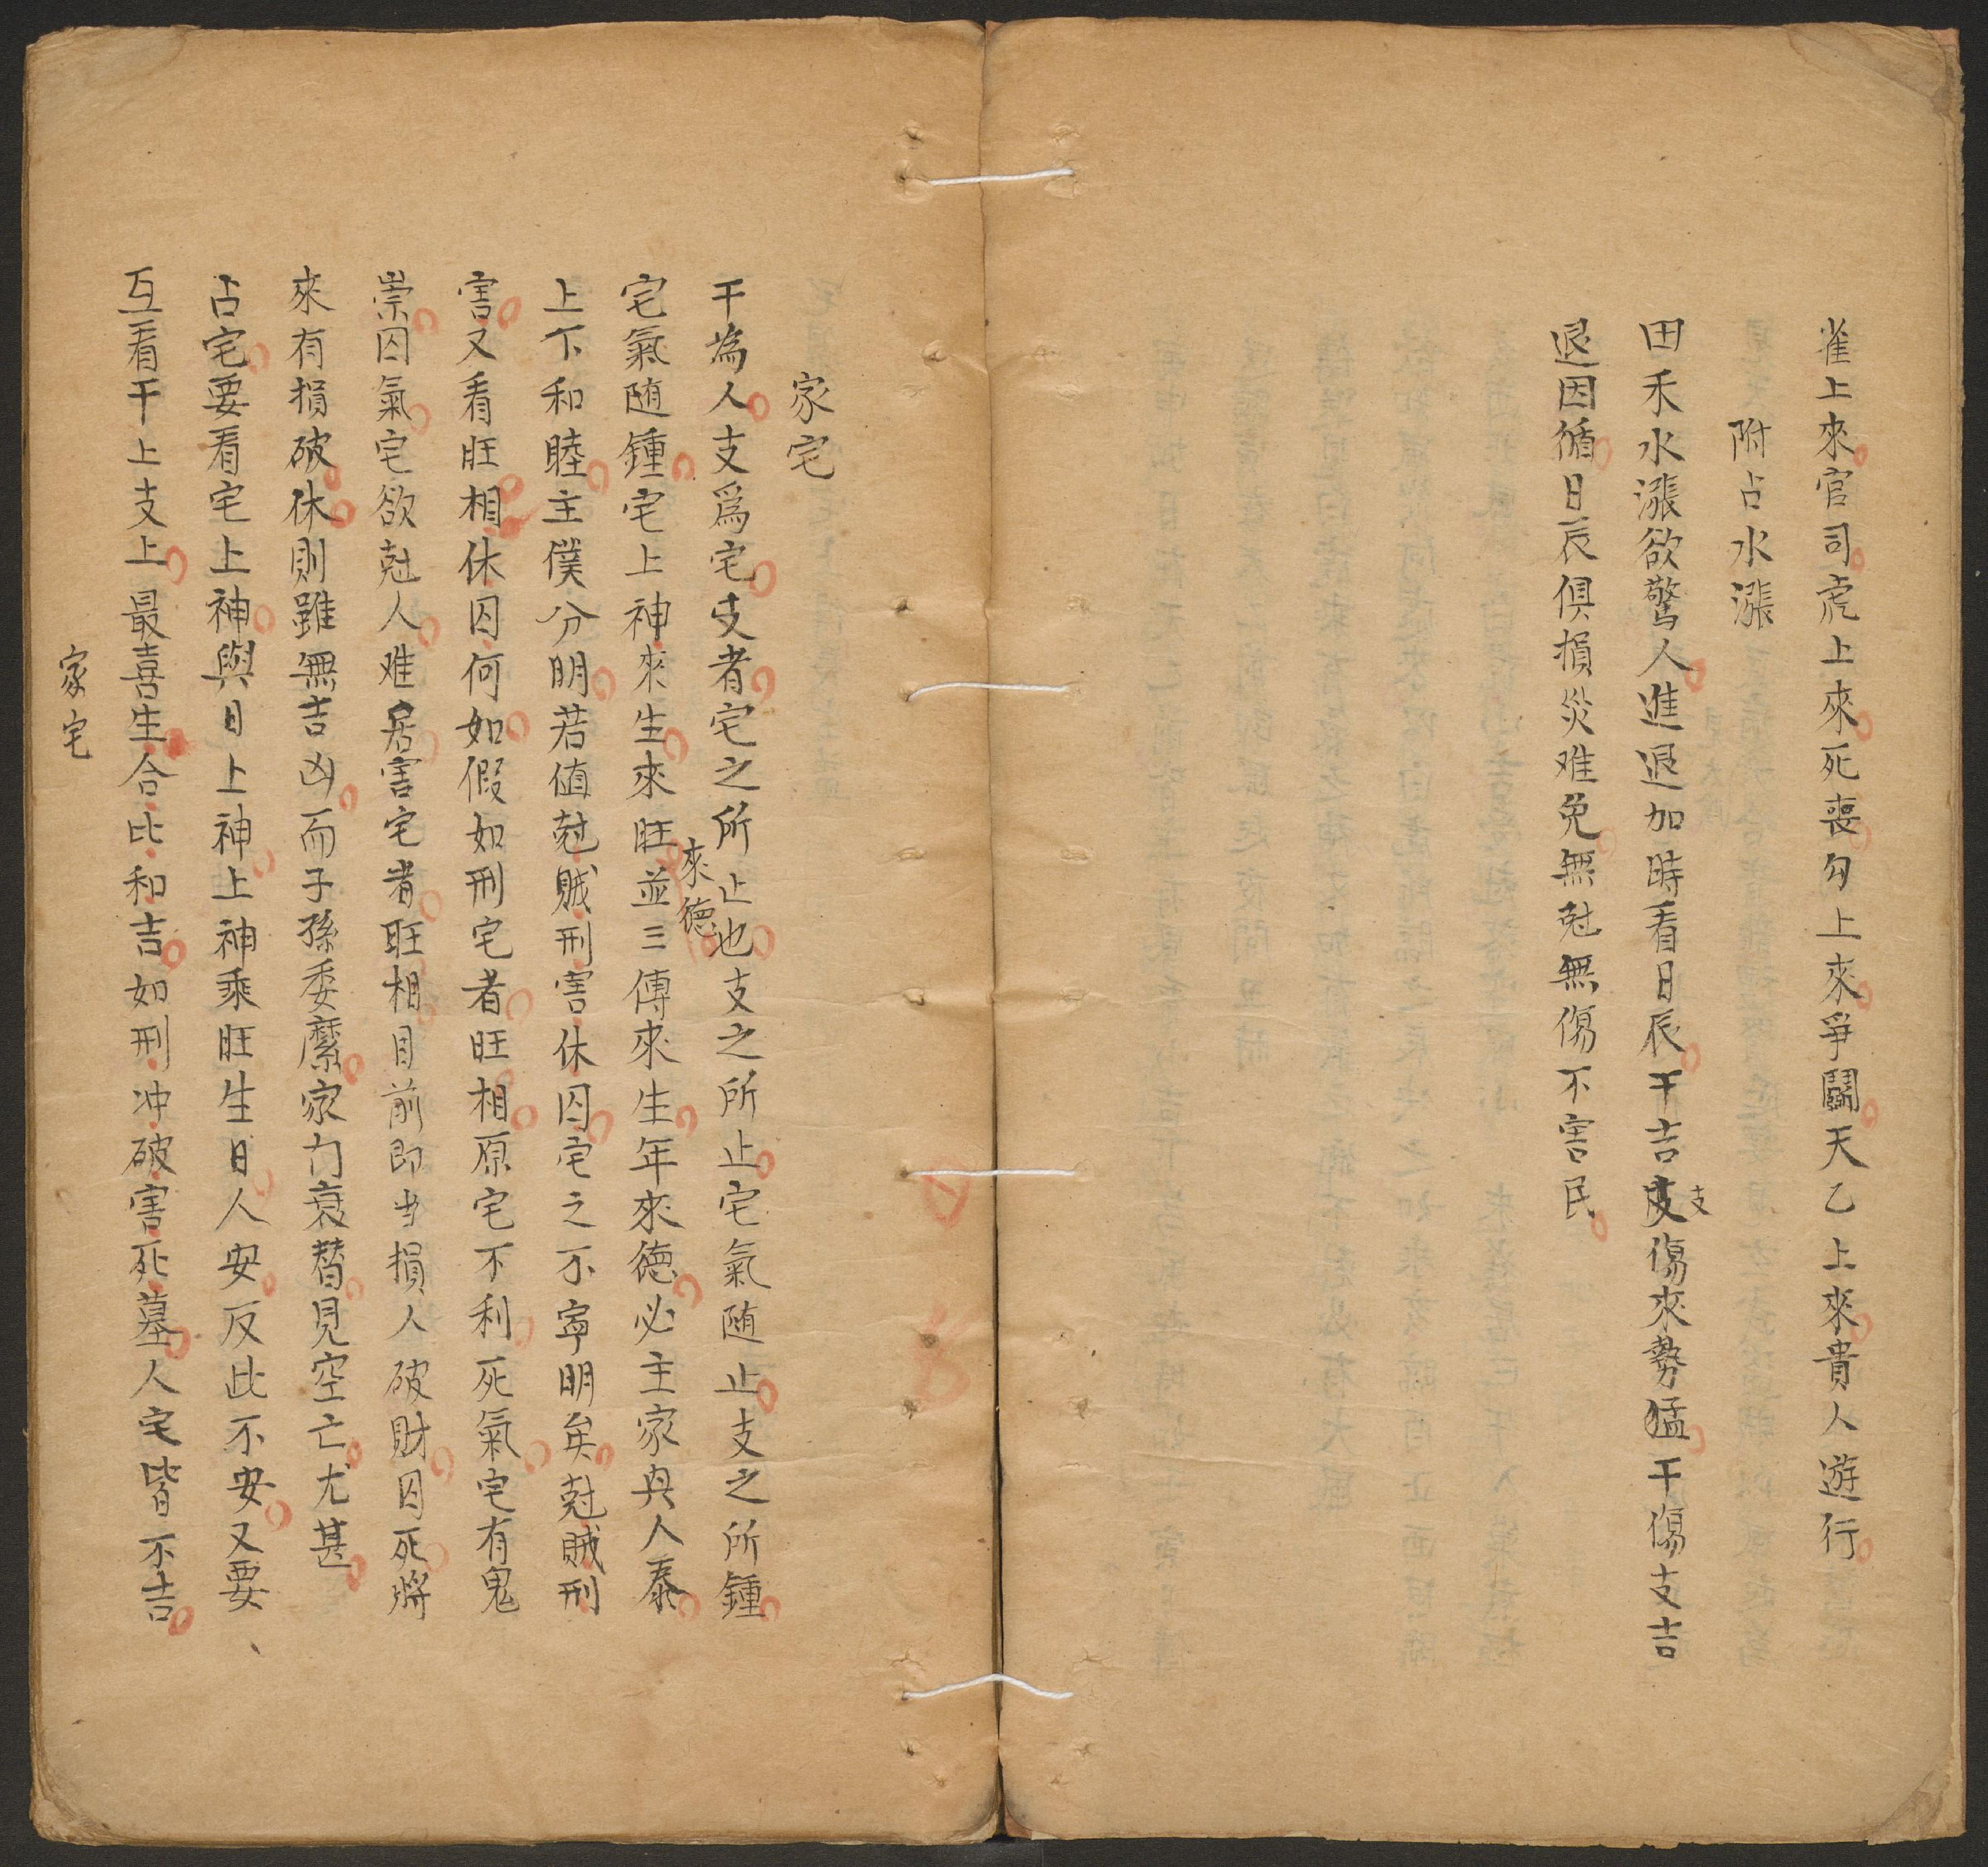 雀上來官司虎上來死喪勾上來爭鬭天乙上來貴人遊行
附占水漲
田禾水漲欲驚人進退加時看日辰干吉支傷來勢猛干傷支吉
支
退因循日辰俱損災难免無尅無傷不害民
家宅
干為人支爲宅支者宅之所止也支之所止宅氣随止支之所鍾
來德
宅氣随鍾宅上神來生來旺並三傳來生年來德必主家與人泰
上下和睦主僕分明若值尅賊刑害休囚宅之不寕明矣尅賊刑
害又看旺相休囚何如假如刑宅者旺相原宅不利死氣宅有鬼
祟囚氣宅欲尅人难居害宅者旺相目前即当損人破財囚死將
來有損破休則雖無吉凶而子孫委靡家门衰替見空亡尤甚
占宅要看宅上神與日上神上神乘旺生日人安反此不安又要
互看干上支上最喜生合比和吉如刑冲破害死墓人宅皆不吉
家宅